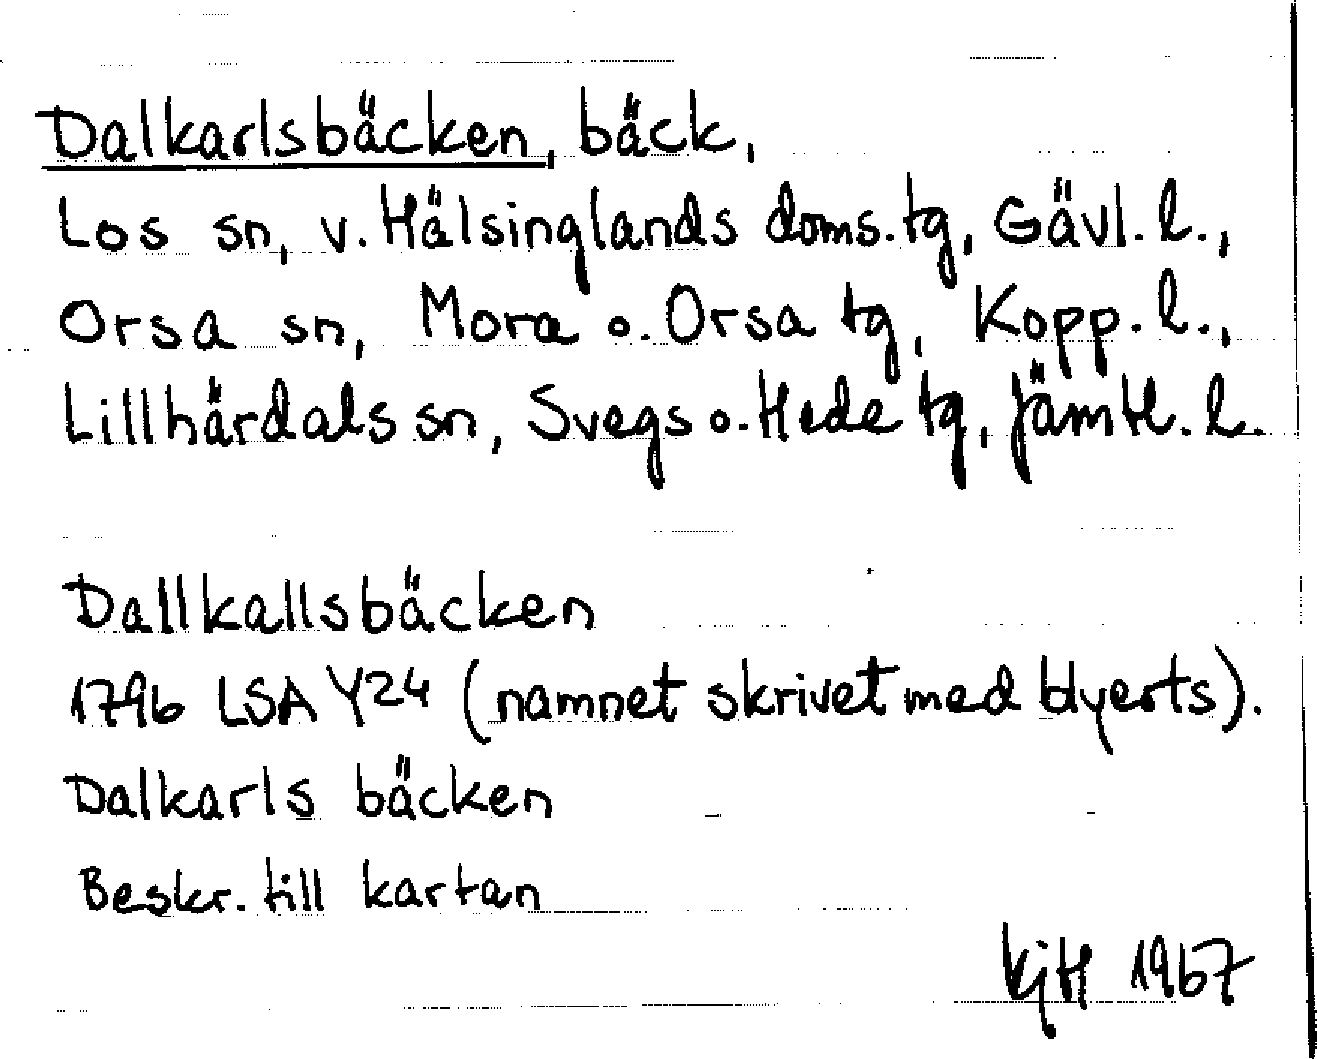 Dalkarlsbäcken, bäck,
Los sn, v. Hälsinglands doms. tg, Gävl. l.,
Orsa sn, Mora o. Orsa tg, Kopp. l.,
Lillhärdals sn, Svegs o. Hede tg, Jämtl. l.
Dallkallsbäcken
1796 LSA Y24 (namnet skrivet med blyerts).
Dalkarls bäcken
Beskr. till kartan
KjH 1967